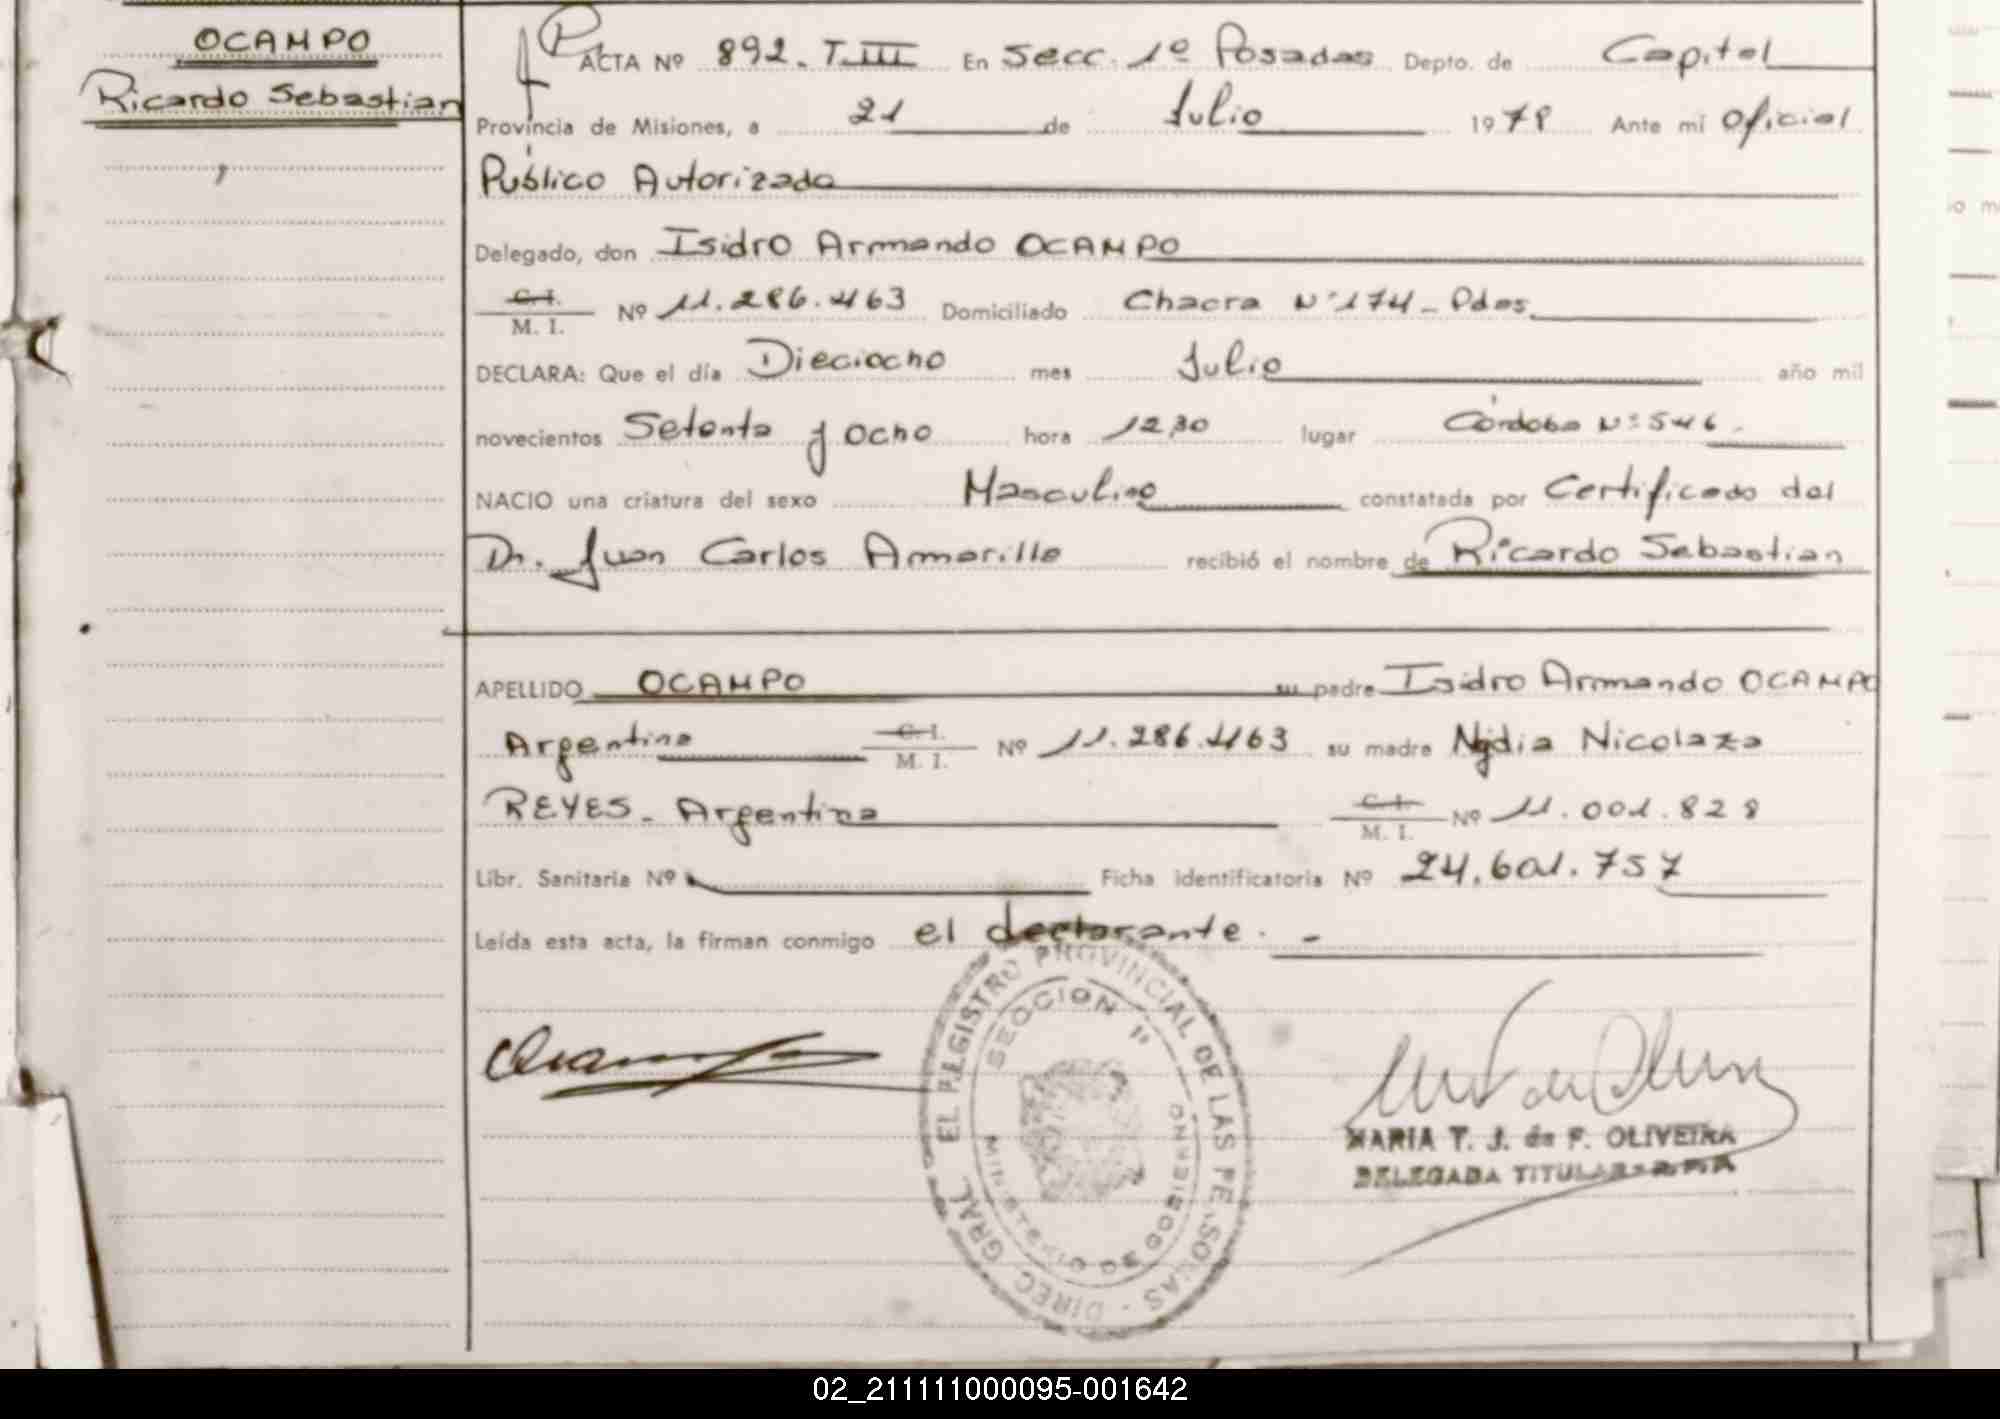 OCAMPO
Ricardo Sebastian
ACTA Nº 892. T.III En Secc. 1º Posadas Depto. de Capital
Provincia de Misiones, a 21 de Julio 1978 Ante mí Oficial
Público Autorizado
Delegado, don Isidro Armando OCAMPO
C. I.
M. I. Nº 11.286.463 Domiciliado Chacra Nº 174 - Pdas.
DECLARA: Que el día Dieciocho mes Julio año mil
novecientos Setenta y ocho hora 12,30 lugar Córdoba Nº 546.
NACIO una criatura del sexo Masculino constatada por Certificado del
Dr. Juan Carlos Amarilla recibió el nombre de Ricardo Sebastian
APELLIDO OCAMPO su padre Isidro Armando OCAMPO
Argentina C. I.
M. I. Nº 11.286.463 su madre Nydia Nicolaza
REYES - Argentina C. I.
M. I. Nº 11.001.828
Libr. Sanitaria Nº Ficha identificatoria Nº 24.601.757
Leída esta acta, la firman conmigo el declarante. -
DIREC GRAL EL REGISTRO PROVINCIAL DE LAS PERSONAS
SECCION 1º
MINISTERIO DE GOBIERNO
MARIA T. J. de F. OLIVEIRA
DELEGADA TITULAR
02_211111000095-001642